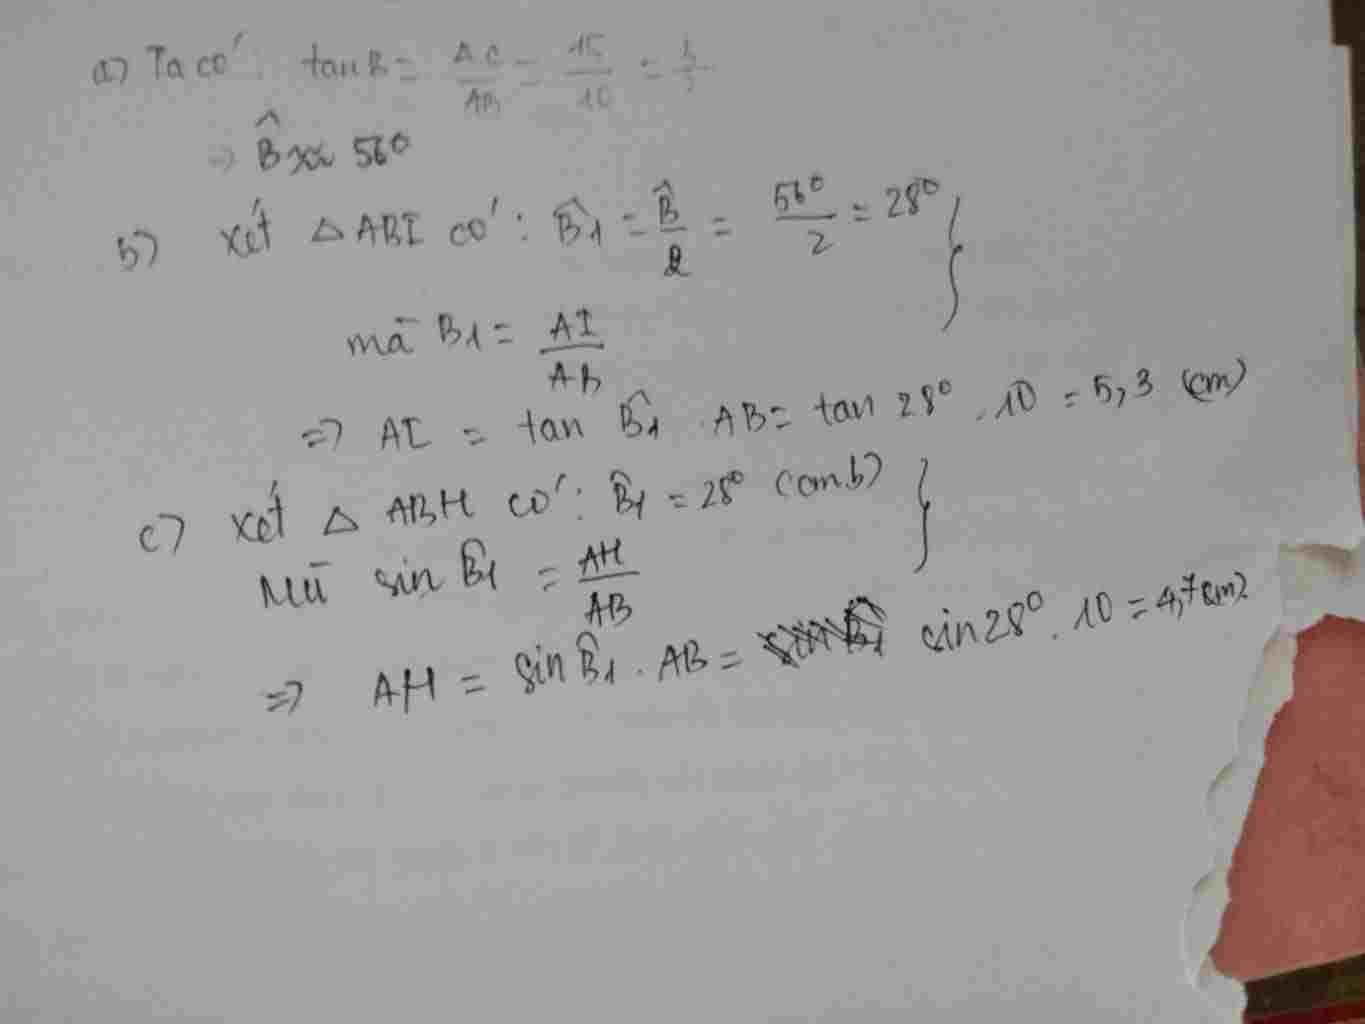 a) Ta có: tan B = AC/AB = 15/10 = 3/2
=> B̂ ≈ 56°
b) xét △ ABI có: B̂1 = B̂/2 = 56°/2 = 28° }
mà B1 = AI/AB
=> AI = tan B̂1 . AB = tan 28° . 10 = 5,3 (cm)
c) xét △ ABH có: B̂1 = 28° (cm.b) }
Mà sin B̂1 = AH/AB
=> AH = sin B̂1 . AB = sin 28° . 10 = 4,7 (cm)